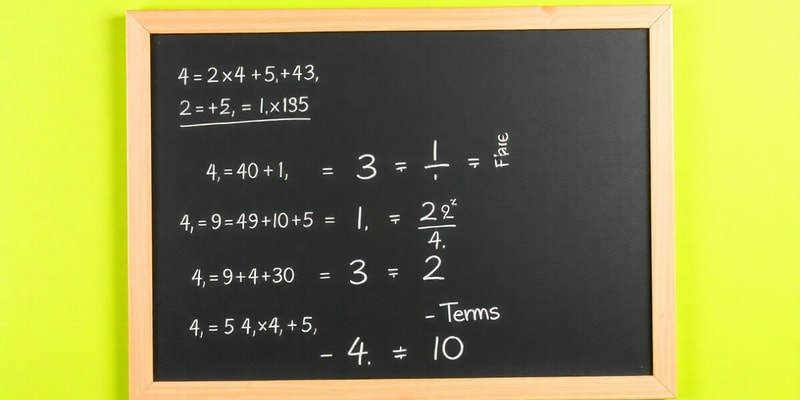 4 = 2 × 4 + 5, + 43,
2 = + 5, = 1, × 195
4, = 40 + 1, = 3 = 1/. =
4, = 9 = 49 + 10 + 5 = 1. = 22²/4.
4, = 9 + 4 + 30 = 3 = 2
- Terms
4, = 5 4, × 4, + 5,
- 4. ≠ 10